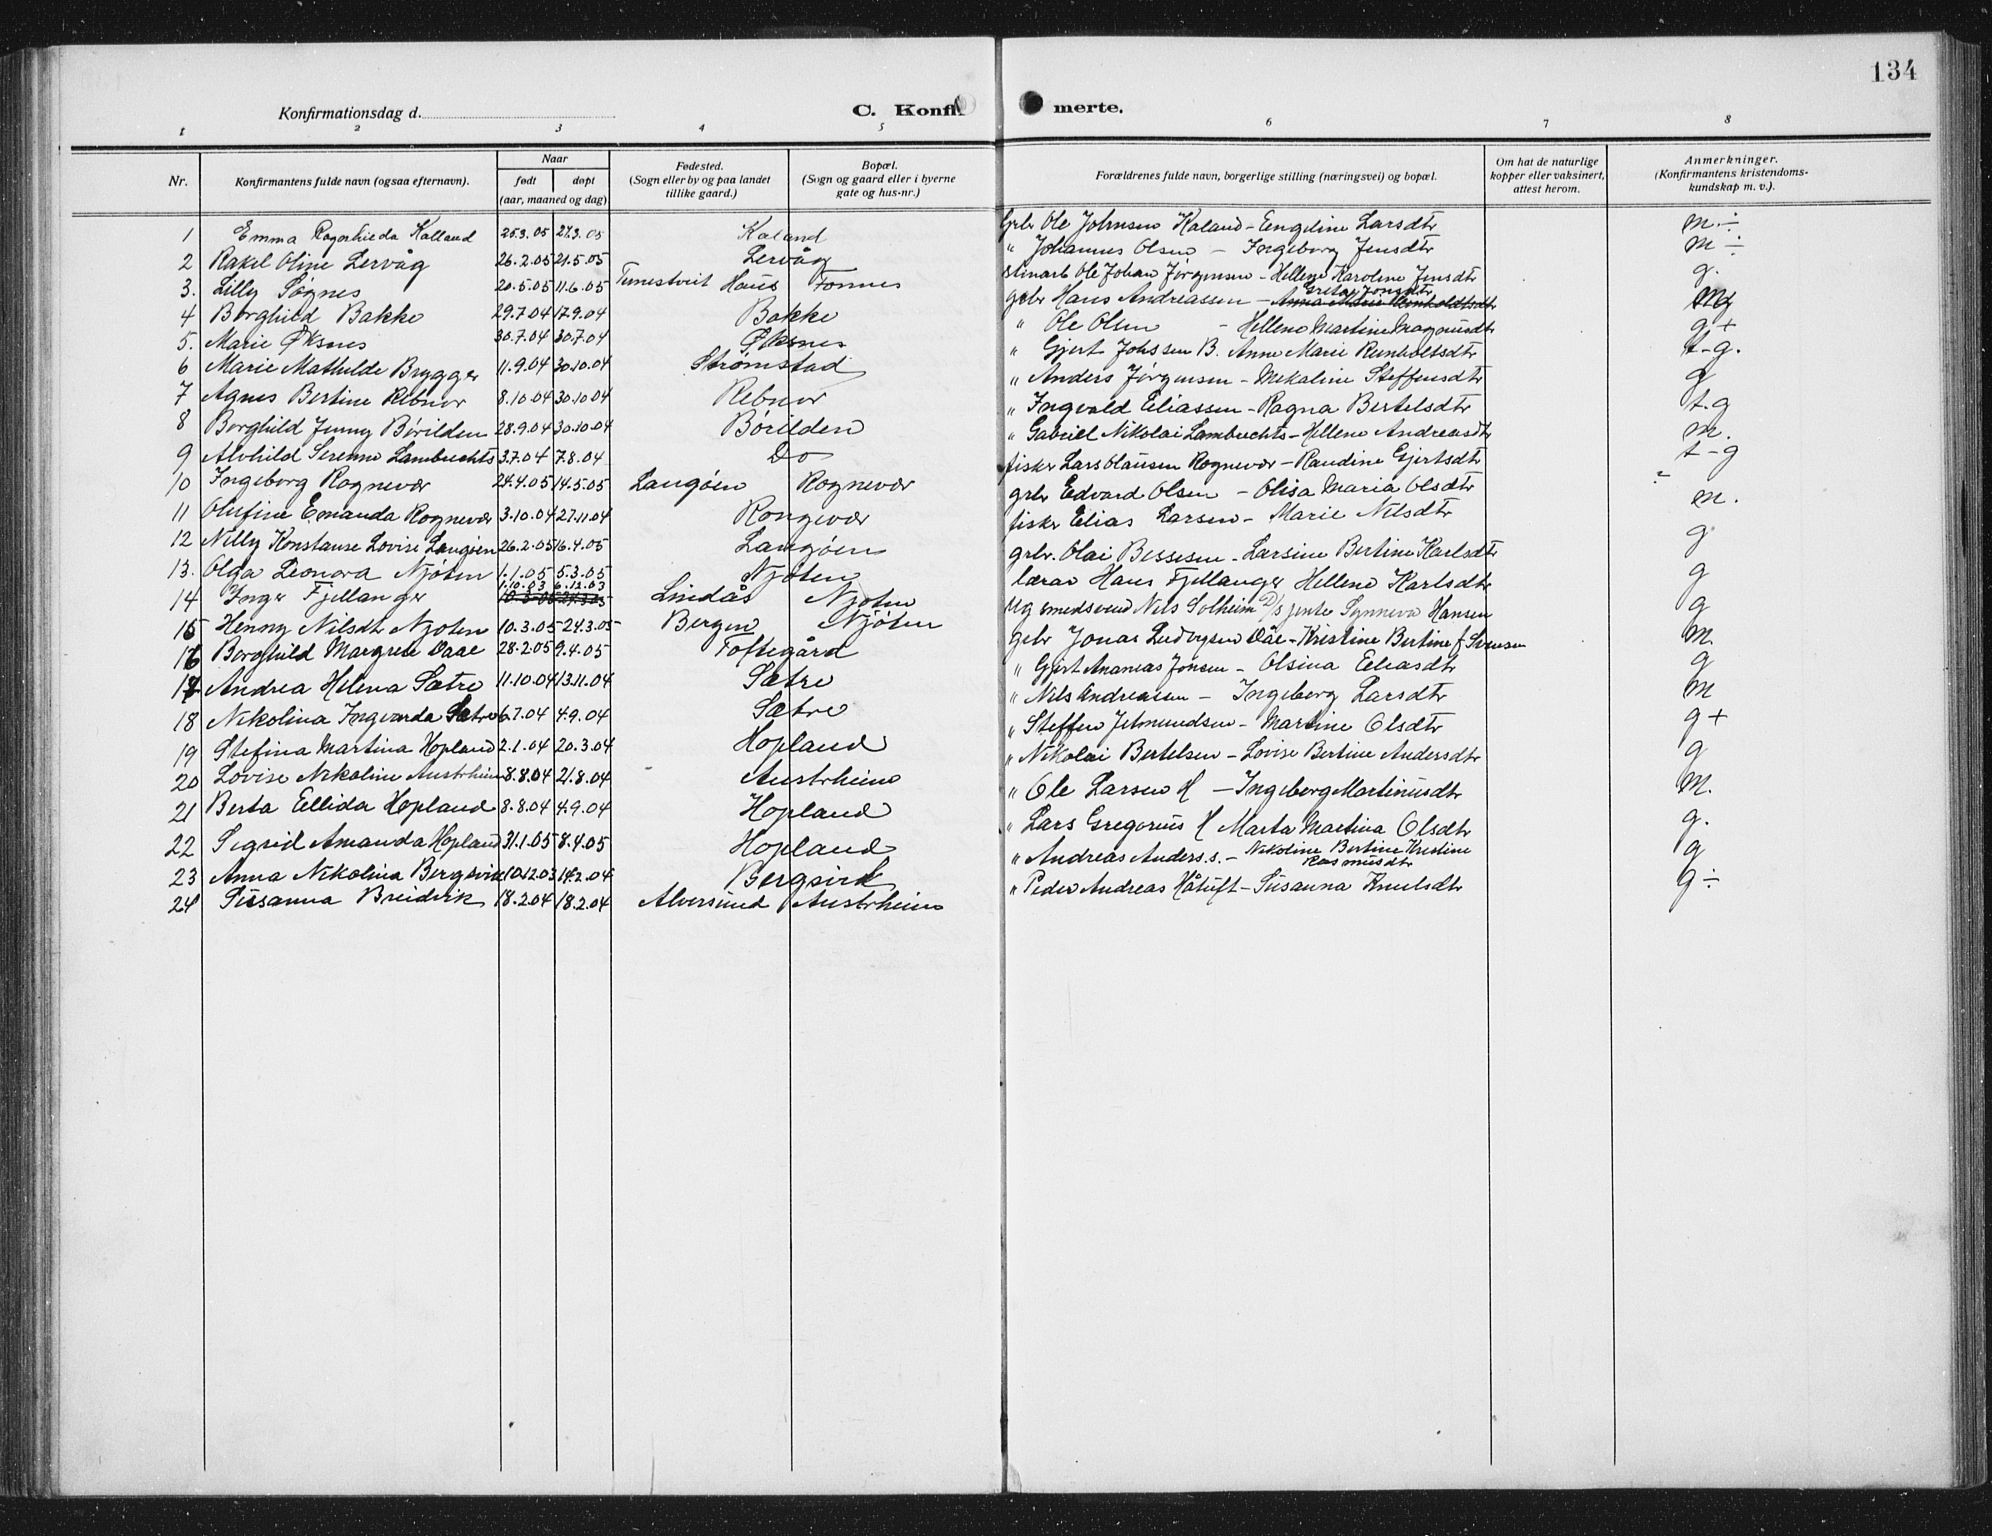 134
Konfirmationsdag d.
C. Konfir
merte.
1 2 3 4 5 6 7 8
Nr.
Konfirmantens fulde navn (ogsaa efternavn).
Naar
født døpt
(aar, maaned og dag)
Fødested.
(Sogn eller by og paa landet
tillike gaard.)
Bopæl.
(Sogn og gaard eller i byerne
gate og hus-nr.)
Forældrenes fulde navn, borgerlige stilling (næringsvei) og bopæl.
Om hat de naturlige
kopper eller vaksinert,
attest herom.
Anmerkninger.
(Konfirmantens kristendoms-
kundskap m. v.).
1 Emma Ragnhilda Kalland 25.3.05 27.3.05 Kaland Grbr Ole Johnsen Kaland - Eengeline Larsdtr m ÷
2 Rakel Oline Lervåg 26.2.05 21.5.05 Lervåg " Johannes Olsen - Ingeborg Jensdtr m ÷
3. Lilly Søgnes 20.5.05 11.6.05 Tunestveit Haus Fonnes stinarb Ole Johan Jørgensen - Hellene Karoline Jensdtr g.
4 Borghild Bakke 29.7.04 17.9.04 Bakke grbr Hans Andreassen - Anna Marie Reinholdtsdtr Greta Jonsdtr mg
5. Marie Øksnes 30.7.04 30.7.04 Øksnes " Ole Olsen - Hellene Martine Magnusdtr g+
6 Marie Mathilde Brygger 11.9.04 30.10.04 Strømstad " Gjert Johssen B. Anne Marie Reinholtsdtr t-g.
7 Agnes Bertine Rebnor 8.10.04 30.10.04 Rebnor " Anders Jørgensen - Mekaline Steffensdtr g
8 Borghild Jenny Børilden 28.9.04 30.10.04 Børilden " Ingvald Eliassen - Ragna Bertelsdtr t.g
9 Alvhild Serenne Lambrechts 3.7.04 7.8.04 Do " Gabriel Nikolai Lambrechts - Hellene Andreasdtr m.
10 Ingeborg Rognevær 24.4.05 14.5.05 Langøen Rognevær fisker Lars Olausen Rognevær - Raudine Gjertsdtr t-g
11 Olufine Emanda Rognevær 3.10.04 27.11.04 Rongevær grbr Edvard Olsen - Olisa Maria Olsdtr m.
12 Nilly Konstanse Lovise Langøen 26.2.05 16.4.05 Langøen fisker Elias Larsen - Marie Nilsdtr g
13. Olga Leonora Njøten 1.1.05 5.3.05 Njøten grbr. Olai Bessesen - Larsine Bertine Karlsdtr g
14 Inger Fjellanger 1.10.03 6.12.03 Lindås Njøten lærer Hans Fjellanger Hellene Karlsdtr g
15 Henny Nilsdtr Njøten 10.3.05 24.3.05 Bergen Njøten Ug smedsvend Nils Solheim D/s jente Synneva Hansen m
16 Borghild Margrete Daae 28.2.05 9.4.05 Toftegård grbr Jonas Ludvigsen Dåe - Kristine Bertine f Svensen g
17 Andrea Helena Sætre 11.10.04 13.11.04 Sætre " Gjert Ananias Jonsen - Olsina Eliasdtr m
18 Nikolina Ingvarda Sætre 6.7.04 4.9.04 Sætre " Nils Andreasen - Ingeborg Larsdtr g+
19 Stefina Martina Hopland 2.1.04 20.3.04 Hopland " Steffen Jetmundsen - Martine Olsdtr g
20 Lovise Nikoline Austrheim 8.8.04 21.8.04 Austrheim " Nikolai Bertelsen - Lovise Bertine Andersdtr m.
21 Berta Ellida Hopland 8.8.04 4.9.04 Hopland " Ole Larsen H - Ingeborg Martinusdtr g.
22 Sigrid Amanda Hopland 31.1.05 8.4.05 Hopland " Lars Gregorius H Marta Martina Olsdtr g
23 Anna Nikolina Bergsvik 10.12.03 14.2.04 Bergsvik " Andreas Anders.s. - Nikoline Bertine Kristine Rasmusdtr g ÷
24 Susanna Breidvik 18.2.04 18.2.04 Alversund Austrheim " Peder Andreas Håtuft - Susanna Knutsdtr